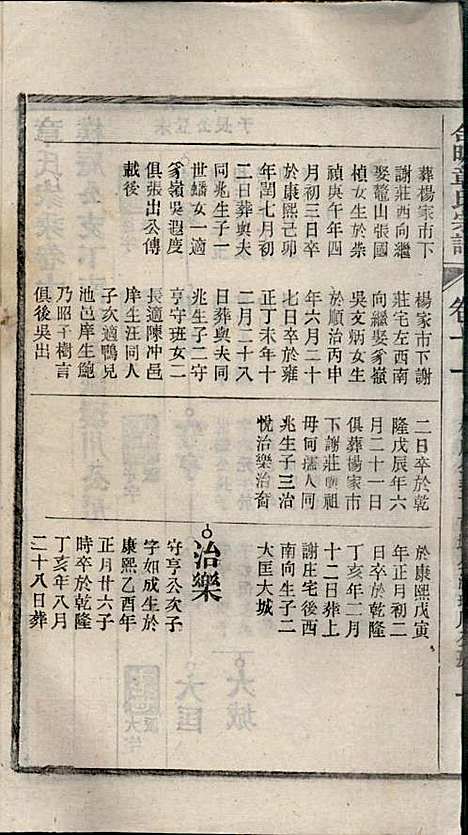 葬楊家市下
謝莊西向繼
娶鰲山張國
楨女生於崇
禎庚午年四
月初三日卒
於康熙己卯
年閏七月初
二日葬與夫
同兆生子一
世蟠女一適
豸嶺吳遐度
俱張出公傳
載後
楊家市下謝
莊宅左西南
向繼娶豸嶺
吳文炳女生
於順治丙申
年六月二十
七日卒於雍
正丁未年十
二月二十八
日葬與夫同
兆生子二守
亨守班女二
長適陳冲邑
庠生汪同人
子次適鴨兒
池邑庠生鮑
乃昭干樹言
俱後吳出
二日卒於乾
隆戊辰年六
月二十一日
俱葬楊家市
下謝莊興祖
毋何孺人同
兆生子三治
悅治樂治奮
於康熙戊寅
年正月初二
日卒於乾隆
丁亥年二月
十二日葬上
謝庄宅後西
南向生子二
大匡大城
治樂
守亨公次子
字如成生於
康熙乙酉年
正月廿六子
時卒於乾隆
丁亥年八月
二十八日葬
章氏宗譜
卷十一